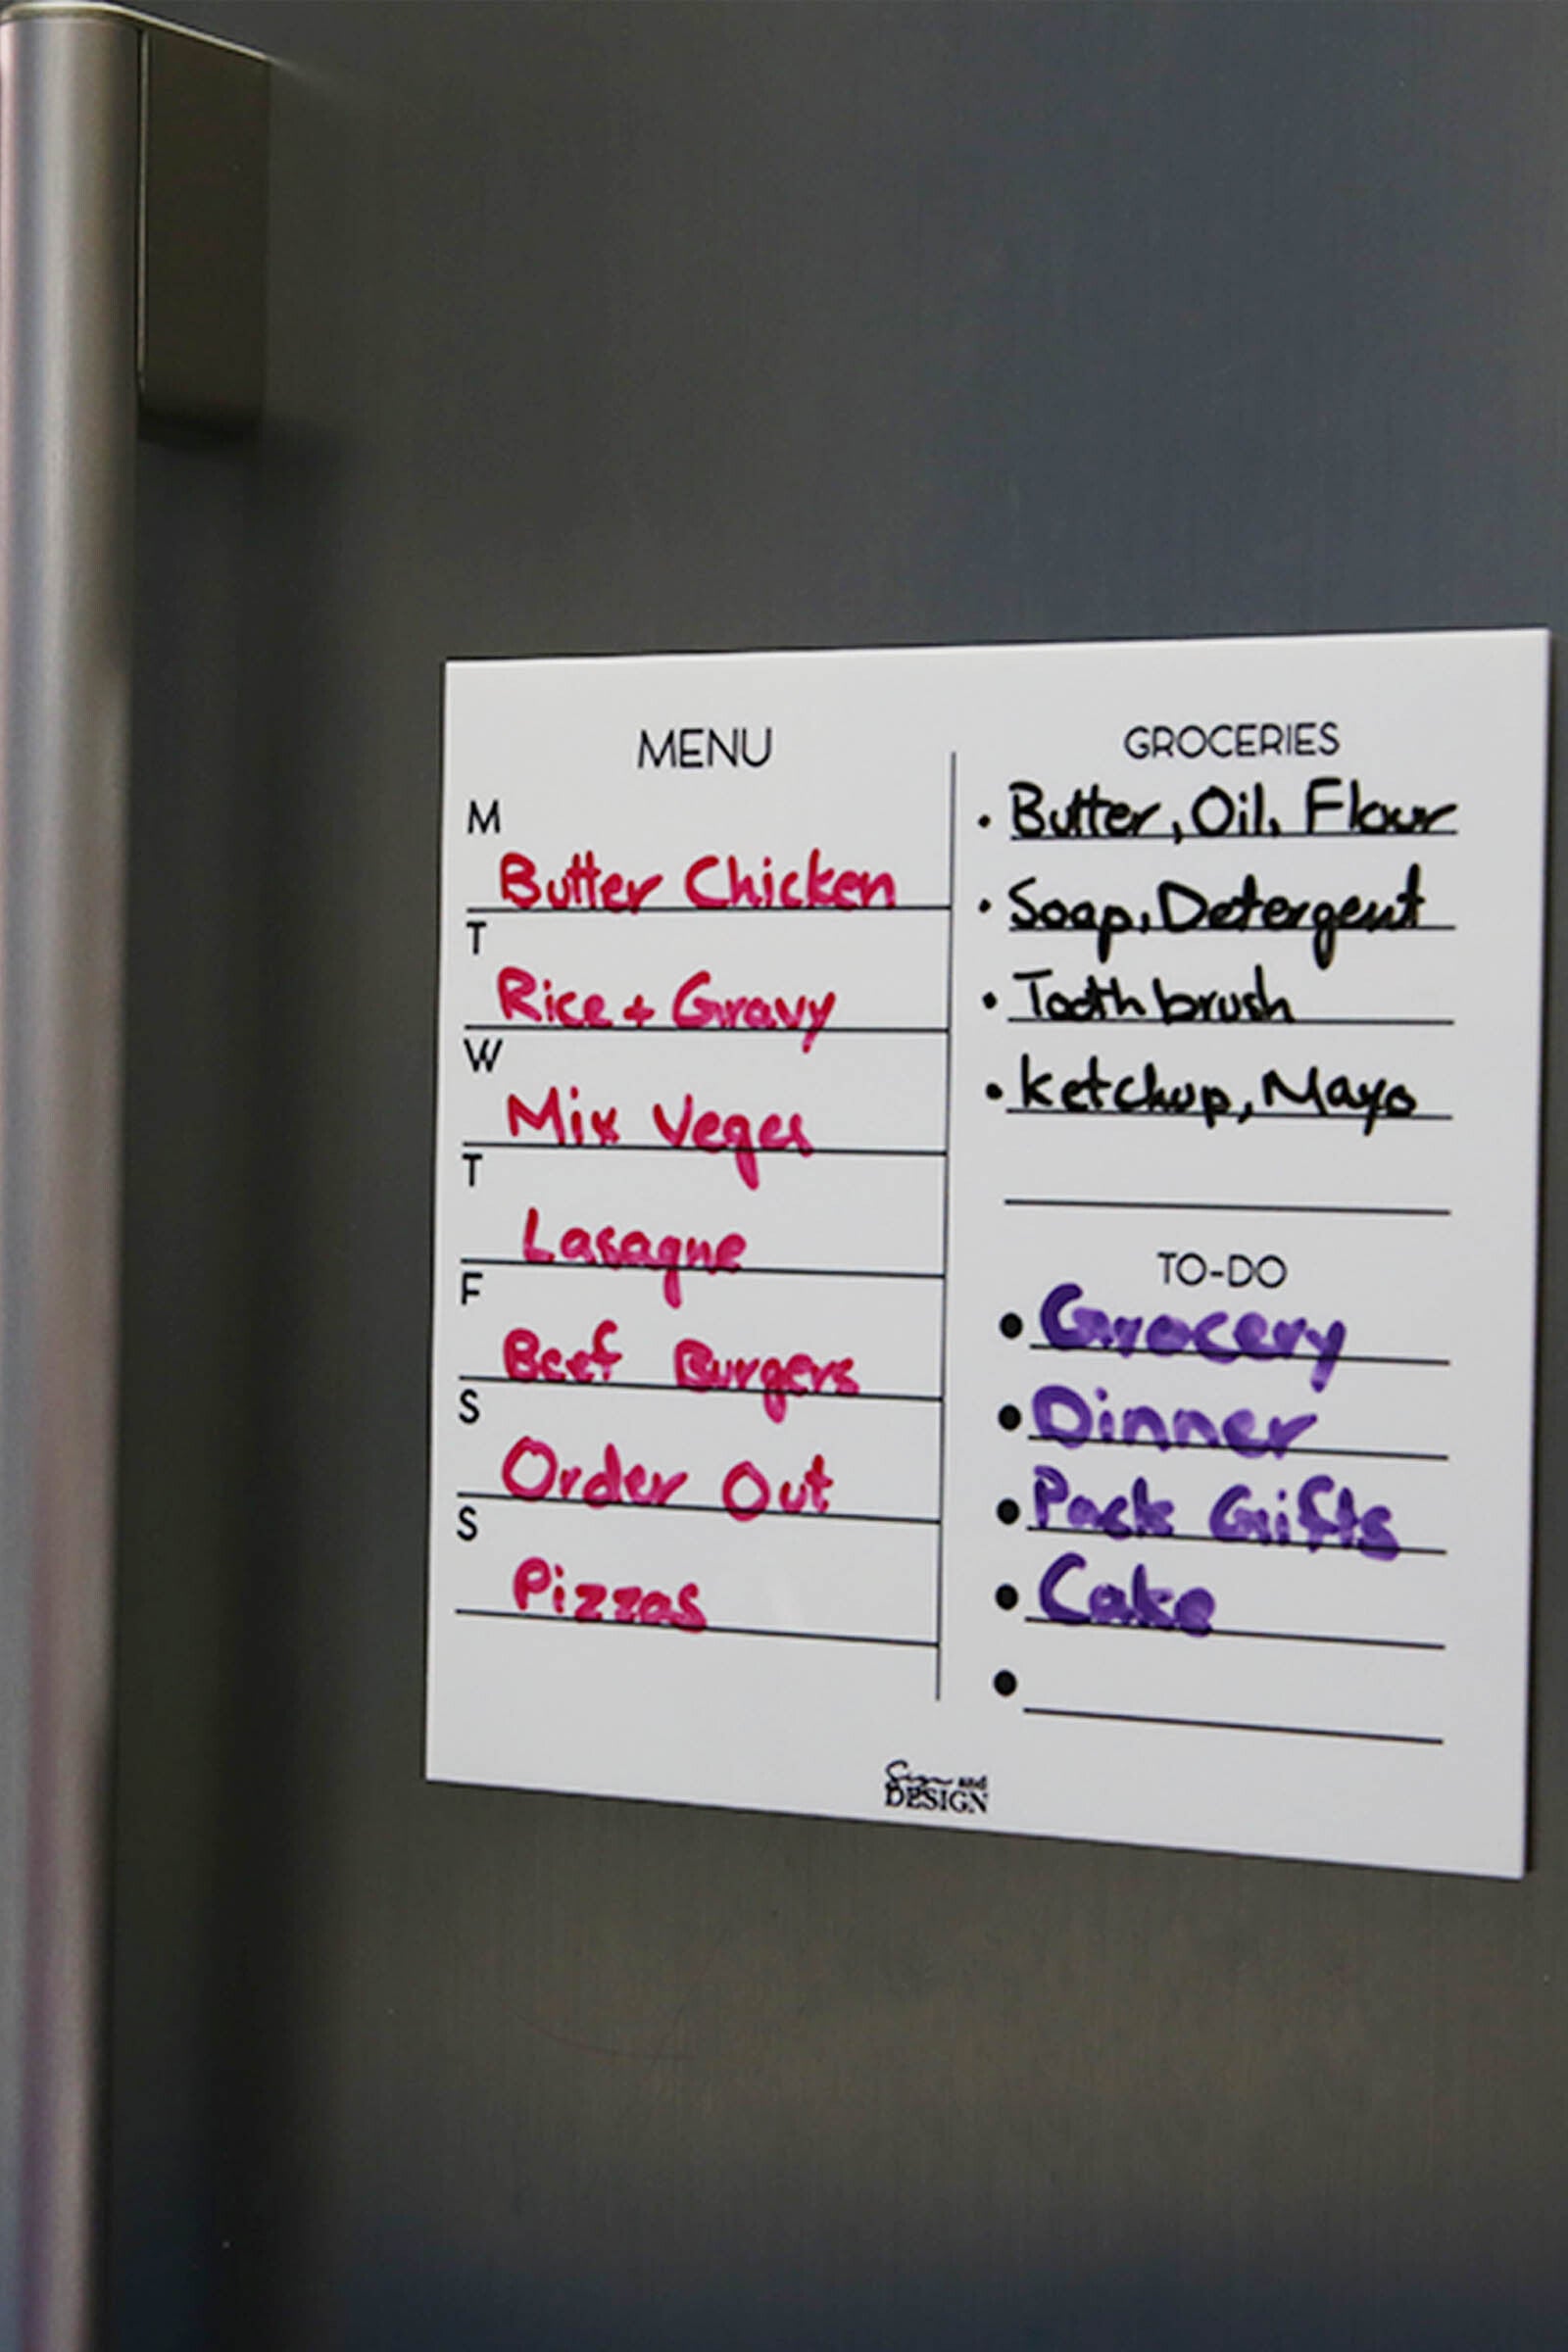 MENU
M
Butter Chicken
T
Rice + Gravy
W
Mix Veges
T
Lasagne
F
Beef Burgers
S
Order Out
S
Pizzas
GROCERIES
• Butter, Oil, Flour
• Soap, Detergent
• Toothbrush
• Ketchup, Mayo
TO-DO
• Grocery
• Dinner
• Pack Gifts
• Cake
•
and
DESIGN